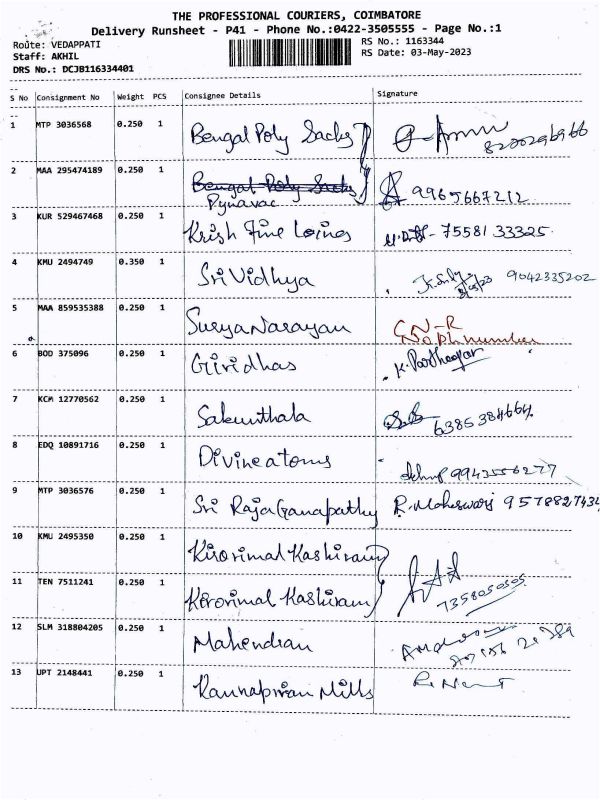 THE PROFESSIONAL COURIERS, COIMBATORE
Delivery Runsheet - P41 - Phone No.:0422-3505555 - Page No.:1
Route: VEDAPPATI RS No.: 1163344
Staff: AKHIL RS Date: 03-May-2023
DRS No.: DCJB116334401
S No Consignment No Weight PCS Consignee Details Signature
1 MTP 3036568 0.250 1 Bengal Poly Sacks
8200296966
2 MAA 295474189 0.250 1 Bengal Poly Sacks
Pynavac 9965667212
3 KUR 529467468 0.250 1 Krish Fine Loings 75581 33325
4 KMU 2494749 0.350 1 Sri Vidhya 9042335202
5 MAA 859535388 0.250 1 Surya Narayan CN-R
No Ph number
6 BOD 375096 0.250 1 Giridhas K. Parthasar
7 KCM 12770562 0.250 1 Sakunthala 6385384664
8 EDQ 10891716 0.250 1 Divineatoms 9943556277
9 MTP 3036576 0.250 1 Sri Raja Ganapathy R. Maheswari 9578827434
10 KMU 2495350 0.250 1 Kirorimal Kashiram
11 TEN 7511241 0.250 1 Kirorimal Kashiram 7358050505
12 SLM 318804205 0.250 1 Mahendran
13 UPT 2148441 0.250 1 Kannapiran Mills